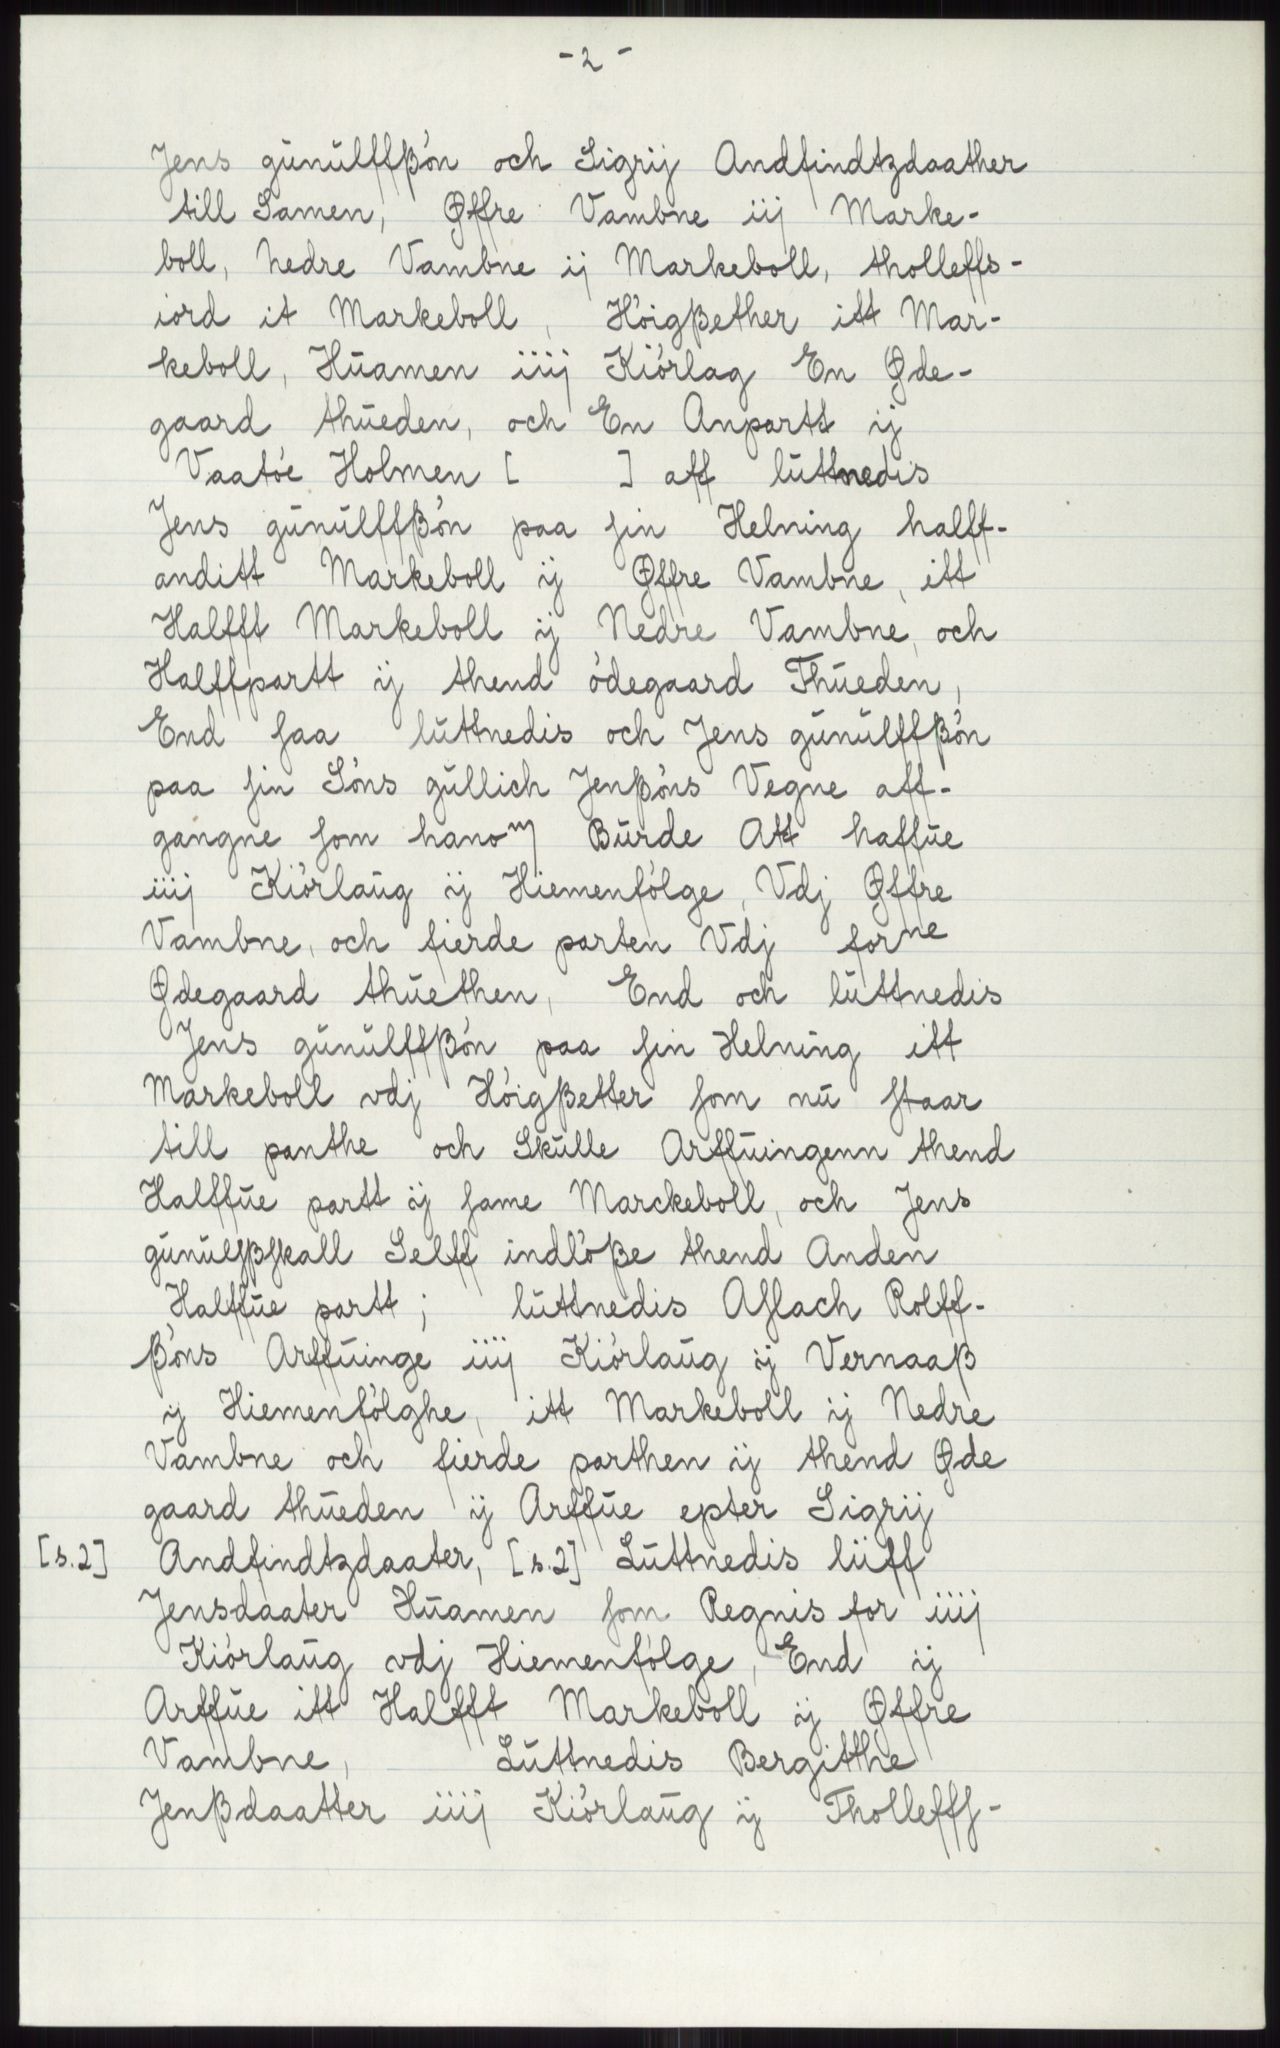 - 2 -
Jens gúnúlffßón och Sigrij Andfindtzdaather
till Samen, Øffre Vambne iij Marke-
boll, nedre Vambne ij Markeboll, tholleffs-
iord it Markeboll, Hóigßether itt Mar-
keboll, Húamen iiij Kiórlag En Øde-
gaard thúeden, och En Anpartt ij
Vaatóe Holmen [ ] aff lúttnedis
Jens gúnúlffßón paa sin Helning halff-
anditt Markeboll ij Øffre Vambne, itt
Halfft Markeboll ij Nedre Vambne, och
Halffpartt ij thend ódegaard Thúeden,
End saa lúttnedis och Jens gúnúlffßón
paa sin Sóns gúllich Jenßóns Vegne aff-
gangne som hanom Búrde Att haffúe
iiij Kiórlaúg ij Hiemenfólge, Vdj Øffre
Vambne, och fierde parten Vdj forne
Ødegaard thúethen, End och lúttnedis
Jens gúnúlffßón paa sin Helning itt
Markeboll vdj Hóigßetter som nú staar
till panthe och Skúlle Arffúingenn thend
Halffúe partt ij same Marckeboll, och Jens
gúnúlfßskall Selff indlóße thend Anden
Halffúe partt; lúttnedis Aslach Rolff-
ßóns Arffúinge iiij Kiórlaúg ij Vernaaß
ij Hiemenfólghe, itt Markeboll ij Nedre
Vambne och fierde parthen ij thend Øde
gaard thúeden ij Arffúe epter Sigrij
[s.2] Andfindtzdaater, [s.2] Lúttnedis lúff
Jensdaater Húamen som Regnis for iiij
Kiórlaúg vdj Hiemenfólge, End ij
Arffúe itt Halfft Markeboll ij Øffre
Vambne, Lúttnedis Bergitthe
Jenßdaatter iiij Kiórlaúg ij Tholleffs-